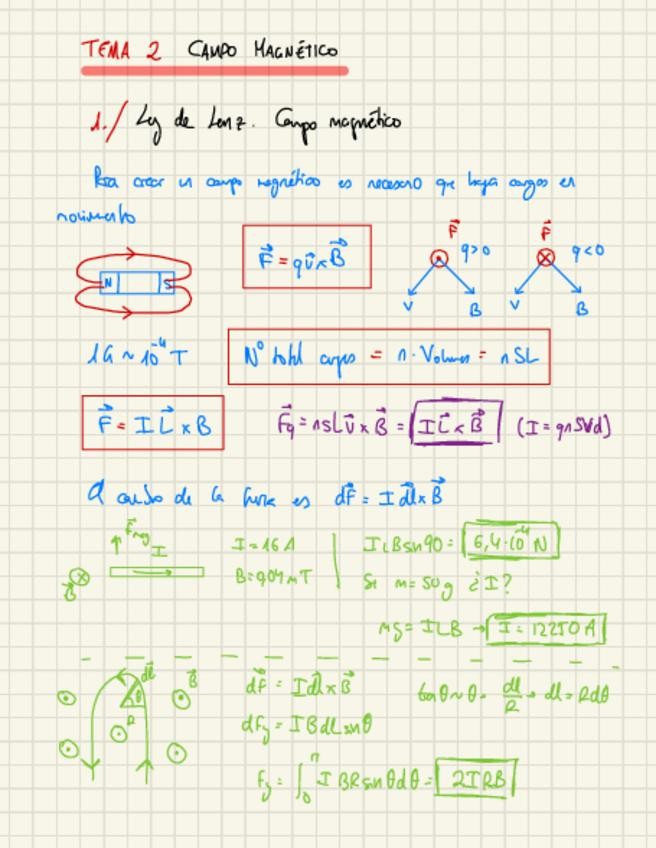 TEMA 2 CAMPO MAGNÉTICO
1./ Ley de Lenz. Campo magnético
Para crear un campo magnético es necesario que haya cargas en
movimiento
N S
F⃗ = qv⃗ x B⃗
F⃗ q>0 V B
F⃗ q<0 V B
1G ~ 10⁻⁴ T
Nº total cargas = n · Volumen = nSL
F⃗ = I L⃗ x B
F⃗q = nsLv⃗ x B⃗ = I L⃗ x B⃗ (I = qnSVd)
de la fuerza es dF⃗ = I dl⃗ x B⃗
F⃗mg I
B⃗
I = 16 A
B = 0,04 mT
ILBsen90 = 6,4·10⁻⁴ N
Si m = 50g ¿I?
mg = ILB → I = 12250 A
dl⃗ θ R B⃗
dF⃗ = I dl⃗ x B⃗
tan θ ~ θ = dl/R → dl = Rdθ
dFy = I B dL sen θ
Fy = ∫₀^π I BR sen θ dθ = 2IRB